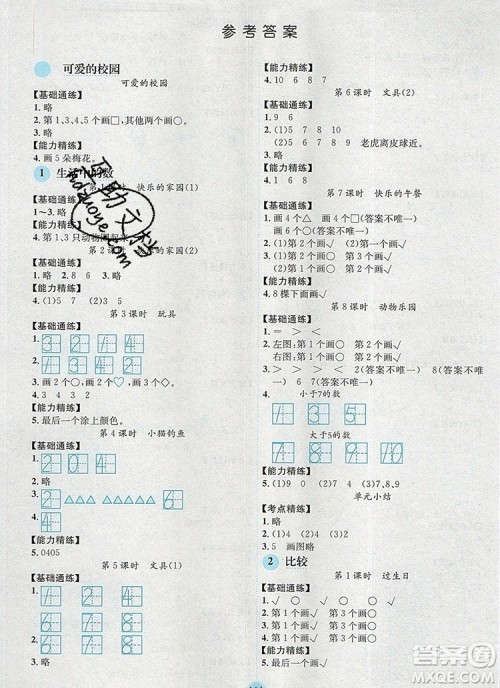 参考答案
可爱的校园
可爱的校园
【基础通练】
1. 略
2. 第1、3、4、5个画□,其他两个画○。
3. 略
【能力精练】
4. 画5朵梅花。
1 生活中的数
第1课时 快乐的家园(1)
【基础通练】
1~3. 略
【能力精练】
4. 第1、3只动物圈起来
第2课时 快乐的家园(2)
【基础通练】
1. 略 2. 8 6 3. 略
【能力精练】
4. (1)5 7 (2)3
第3课时 玩具
【基础通练】
1. 3 2 4
2. 1 4 2 5
3. 画2个○,画2个♡,画3个△。
4. 略
【能力精练】
5. 最后一个涂上颜色。
第4课时 小猫钓鱼
【基础通练】
1. 略
2. 4 0 2
3. 6 △△△△△△ 2 △△ 6
4. 0
【能力精练】
5. 0405
第5课时 文具(1)
【基础通练】
1. 7 2 4
2. 8 7 6
3. 略
【能力精练】
4. 10 6 8 7
第6课时 文具(2)
【基础通练】
1. 9
2. (1)5 7 8 9 老虎离皮球近。
(2)8 9 10
【能力精练】
3. 略
第7课时 快乐的午餐
【基础通练】
1. 画4个△ 画4个□ (答案不唯一)
画3个□ (答案不唯一)
2. (1)第2个画√ (2)第1个画√
3. 画○略
【能力精练】
4. 8棵下面画√
第8课时 动物乐园
【基础通练】
1. = > < <
2. 左图:第1个画○ 第2个画√
右图:第1个画√ 第2个画○
3. > > > > 9(答案不唯一)
6(答案不唯一) 7(答案不唯一)
4. 小于7的数
1 3 5
大于5的数
7 8 9 10
【能力精练】
5. (1)7,8,9 (2)7,9
单元小结
【考点精练】
1. 略
2. (1)4 (2)2
3. 5 画图略
2 比较
第1课时 过生日
【基础通练】
1. √ ○ ○ √ ○ √
2. 第1个画√
3. 第1个画○ 第3个画√
4. 第2个画√
【能力精练】
5. 第2个画√
答案圈
MXQE.COM